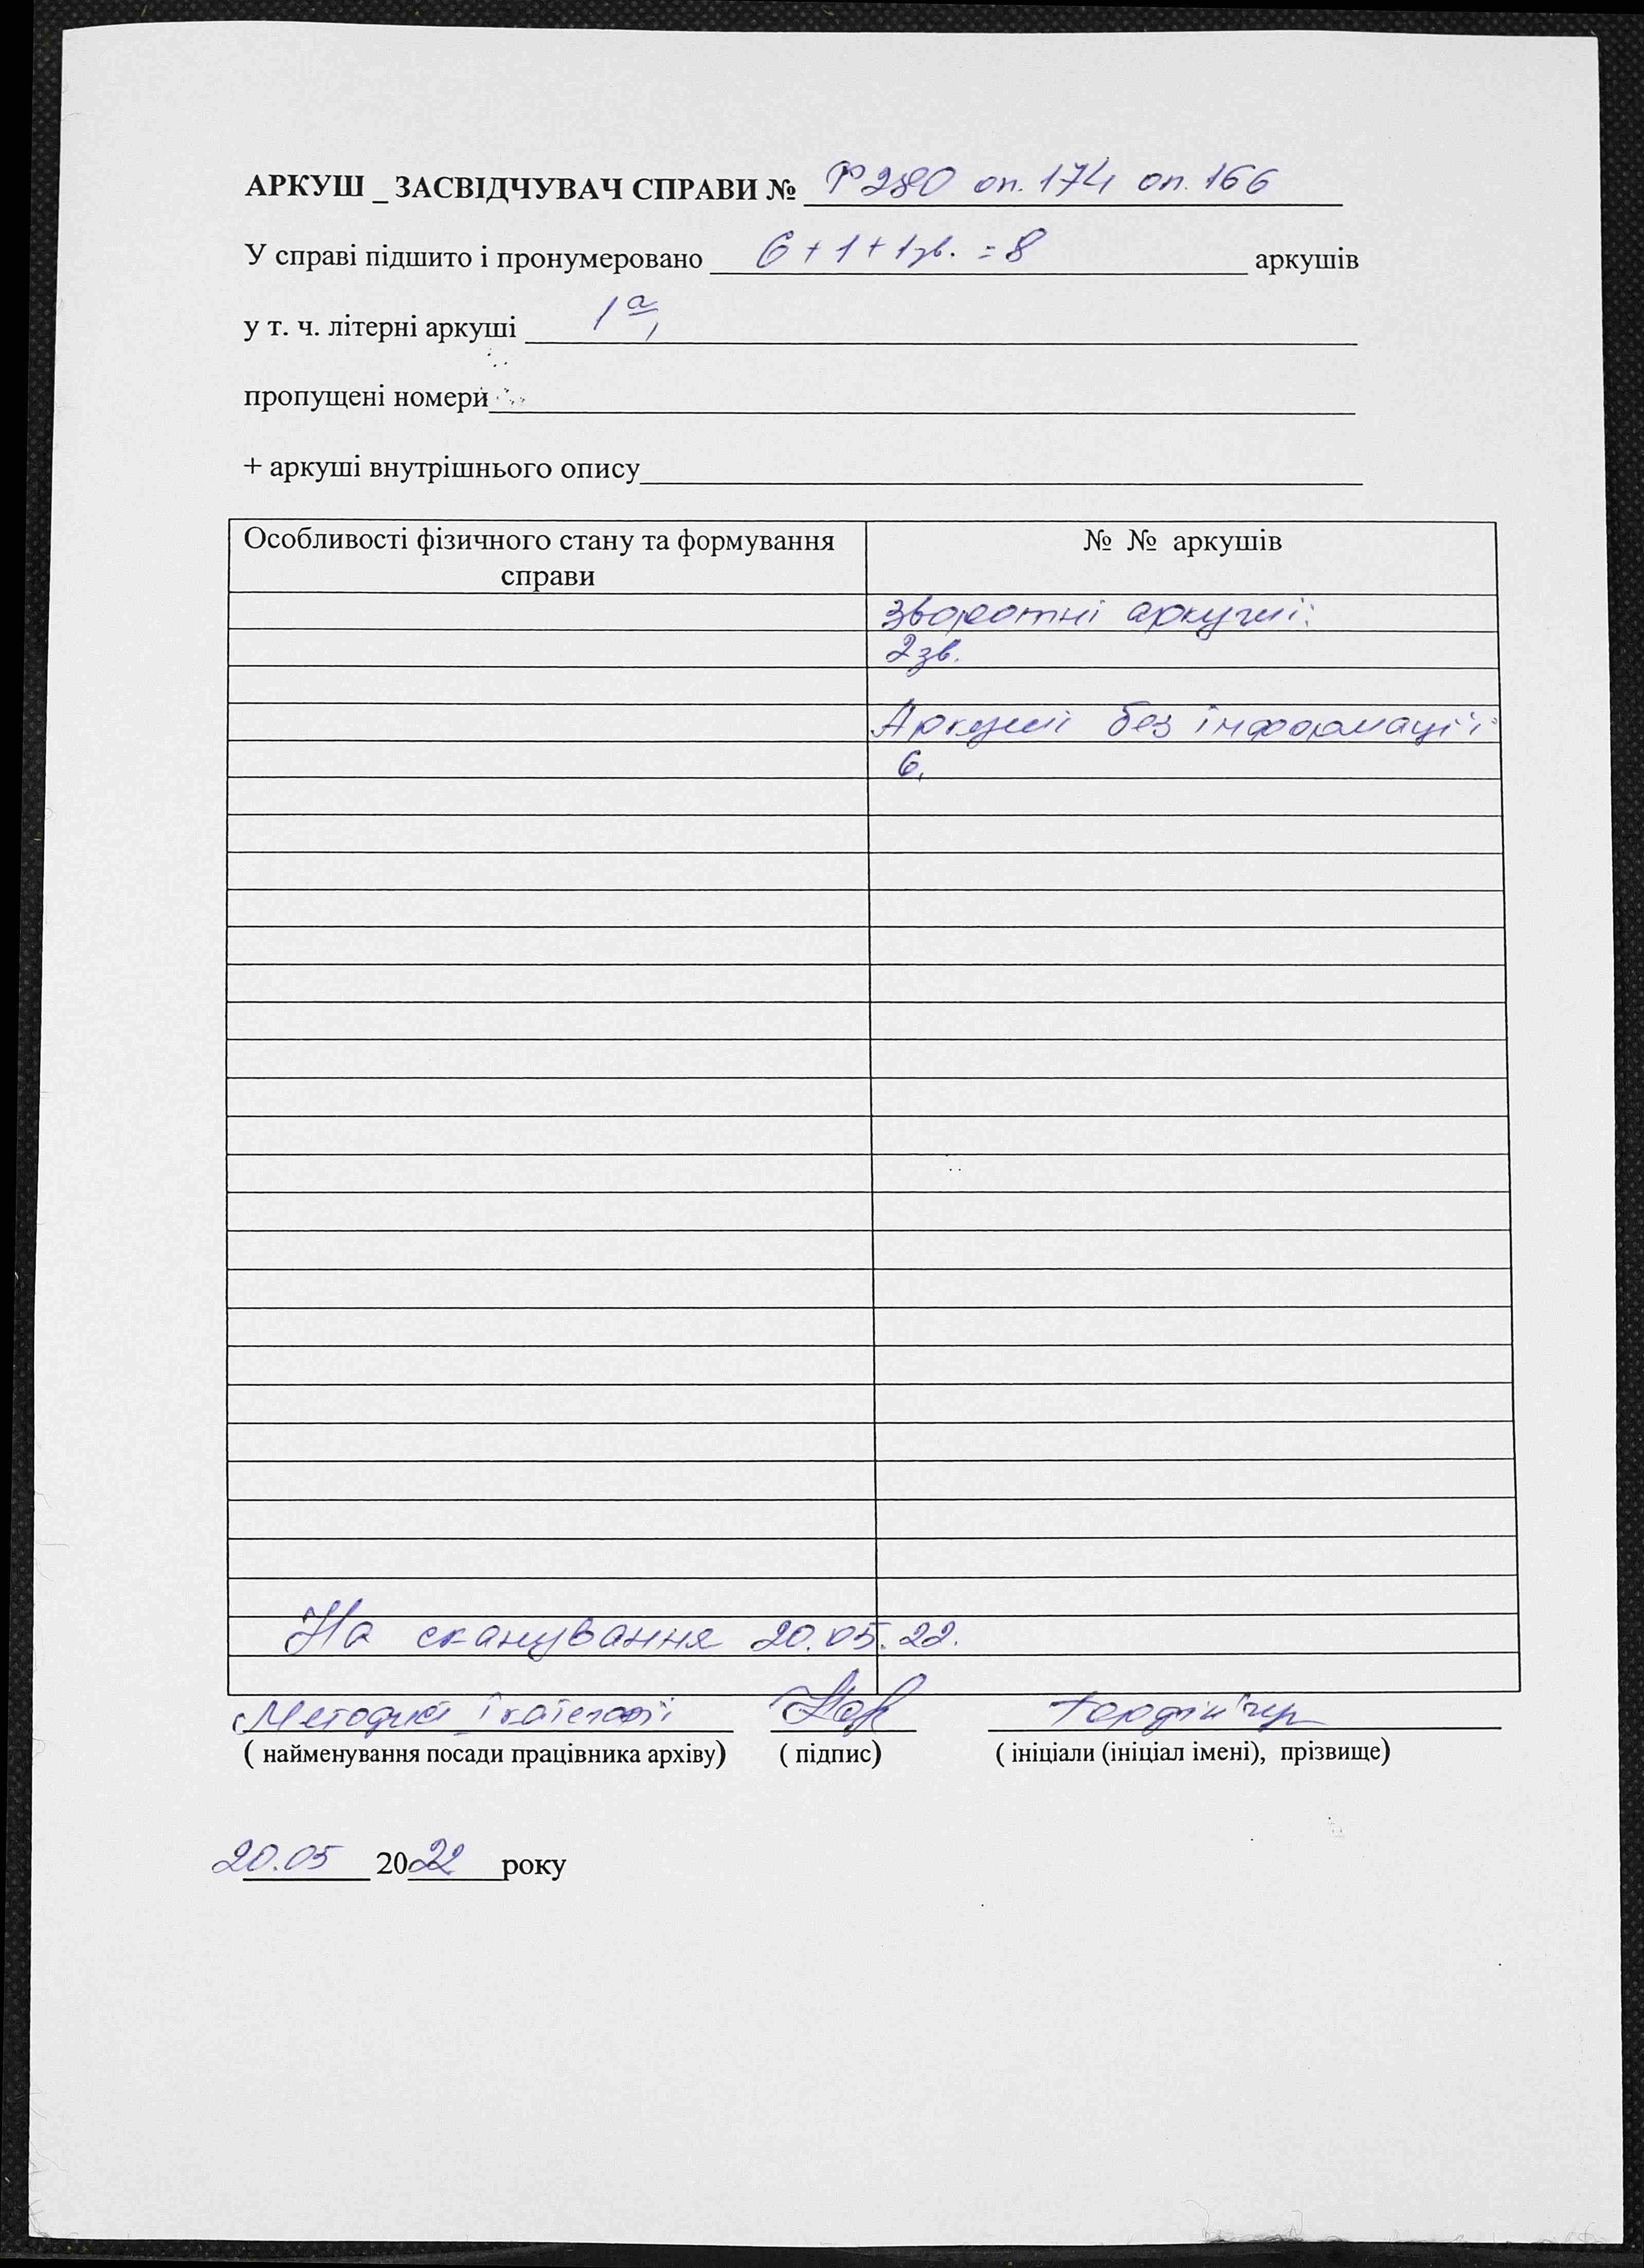 АРКУШ _ ЗАСВІДЧУВАЧ СПРАВИ № Р280 оп. 174 оп. 166
У справі підшито і пронумеровано 6 + 1 + 1зв. = 8 аркушів
у т. ч. літерні аркуші 1а,
пропущені номери
+ аркуші внутрішнього опису
Особливості фізичного стану та формування справи
№ № аркушів
Зворотні аркуші:
2зв.
Аркуші без інформації:
6,
На сканування 20.05.22.
Методист І категорії
( найменування посади працівника архіву) ( підпис) ( ініціали (ініціал імені), прізвище)
20.05 2022 року